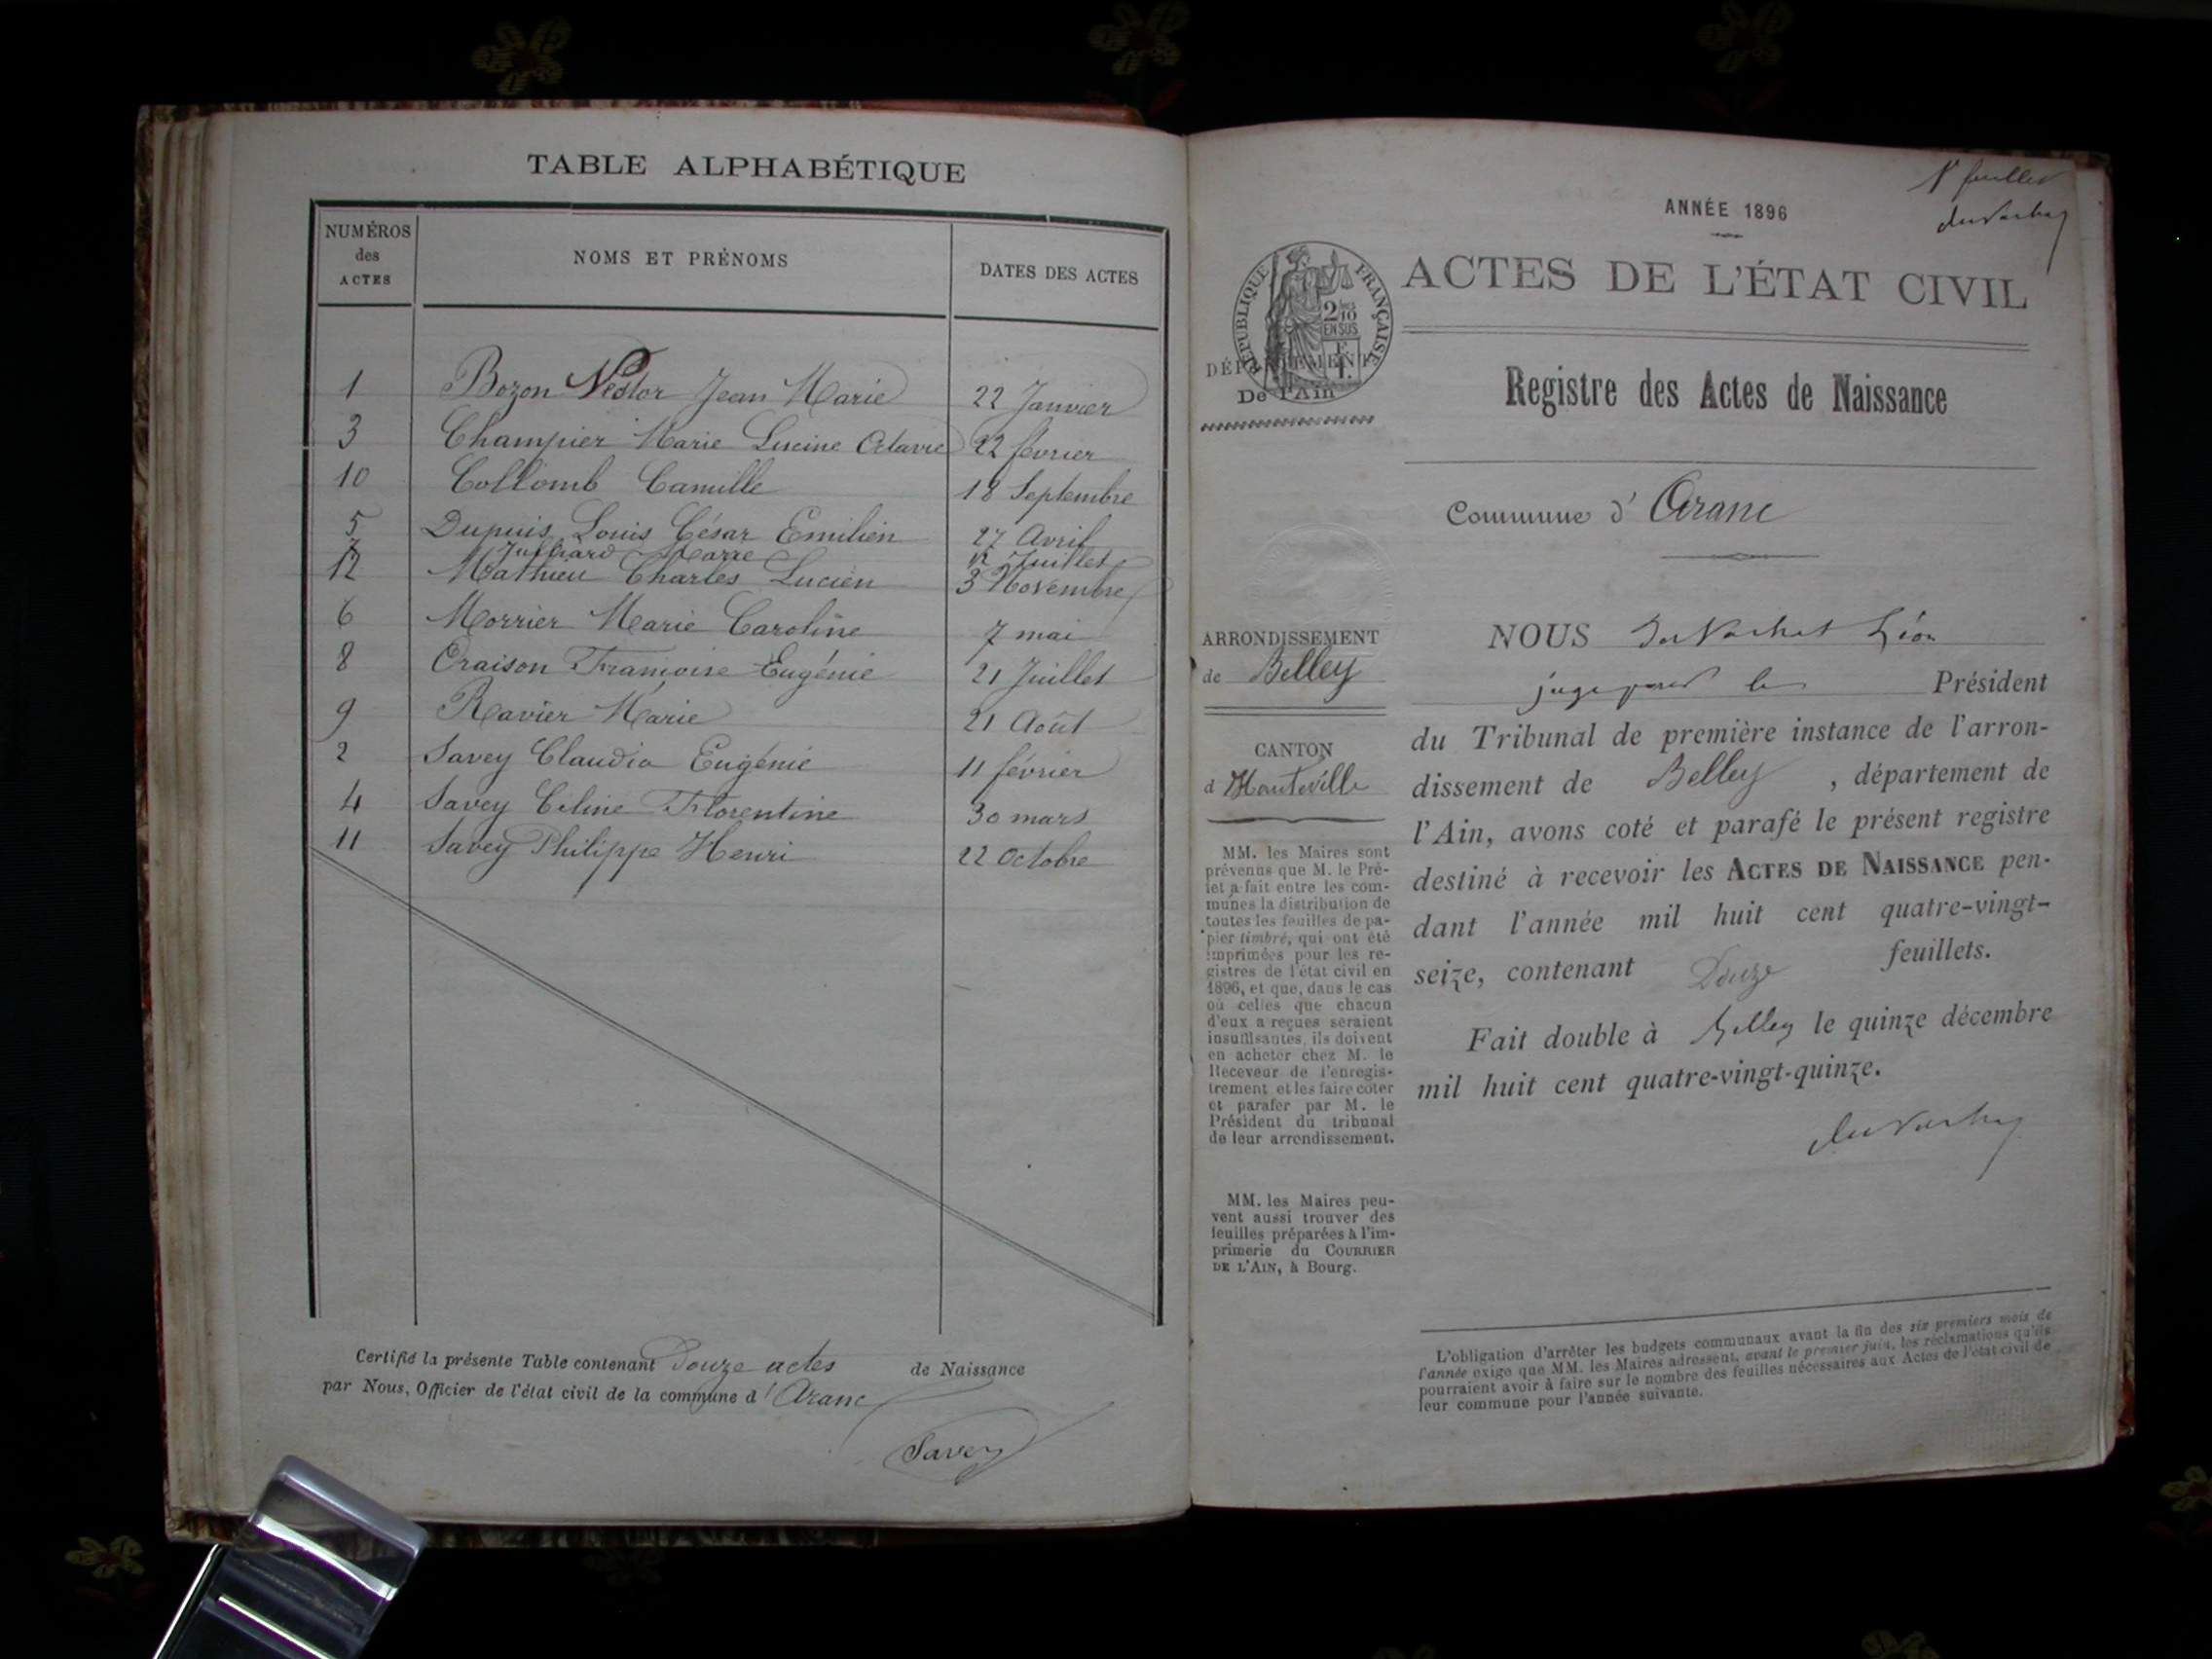 TABLE ALPHABÉTIQUE
NUMÉROS des ACTES
NOMS ET PRÉNOMS
DATES DES ACTES
1 Bozon Nestor Jean Marie 22 Janvier
3 Champier Marie Lucine Octavie 22 février
10 Collomb Camille 18 Septembre
5 Dupuis Louis César Emilien 27 Avril
7 Juilliard Marie 12 Juillet
12 Mathieu Charles Lucien 3 Novembre
6 Morrier Marie Caroline 7 mai
8 Oraison Françoise Eugénie 21 Juillet
9 Ravier Marie 21 Août
2 Savey Claudia Eugénie 11 février
4 Savey Céline Florentine 30 mars
11 Savey Philippe Henri 22 Octobre
Certifié la présente Table contenant Douze actes de Naissance
par Nous, Officier de l'état civil de la commune d'Aranc
Savey
1r feuillet
ANNÉE 1896
ACTES DE L'ÉTAT CIVIL
RÉPUBLIQUE FRANÇAISE
2/10 EN SUS
DÉPARTEMENT
De l'Ain
Registre des Actes de Naissance
Commune d'Aranc
ARRONDISSEMENT
de Belley
CANTON
d'Hauteville
MM. les Maires sont
prévenus que M. le Pré-
fet a fait entre les com-
munes la distribution de
toutes les feuilles de pa-
pier timbré, qui ont été
imprimées pour les re-
gistres de l'état civil en
1896, et que, dans le cas
où celles que chacun
d'eux a reçues seraient
insuffisantes, ils doivent
en acheter chez M. le
Receveur de l'enregis-
trement et les faire coter
et parafer par M. le
Président du tribunal
de leur arrondissement.
MM. les Maires peu-
vent aussi trouver des
feuilles préparées à l'im-
primerie du COURRIER
DE L'AIN, à Bourg.
NOUS Léon
juge pour le Président
du Tribunal de première instance de l'arron-
dissement de Belley, département de
l'Ain, avons coté et parafé le présent registre
destiné à recevoir les ACTES DE NAISSANCE pen-
dant l'année mil huit cent quatre-vingt-
seize, contenant Douze feuillets.
Fait double à Belley le quinze décembre
mil huit cent quatre-vingt-quinze.
L'obligation d'arrêter les budgets communaux avant la fin des six premiers mois de
l'année exige que MM. les Maires adressent, avant le premier juin, les réclamations qu'ils
pourraient avoir à faire sur le nombre des feuilles nécessaires aux Actes de l'état civil de
leur commune pour l'année suivante.